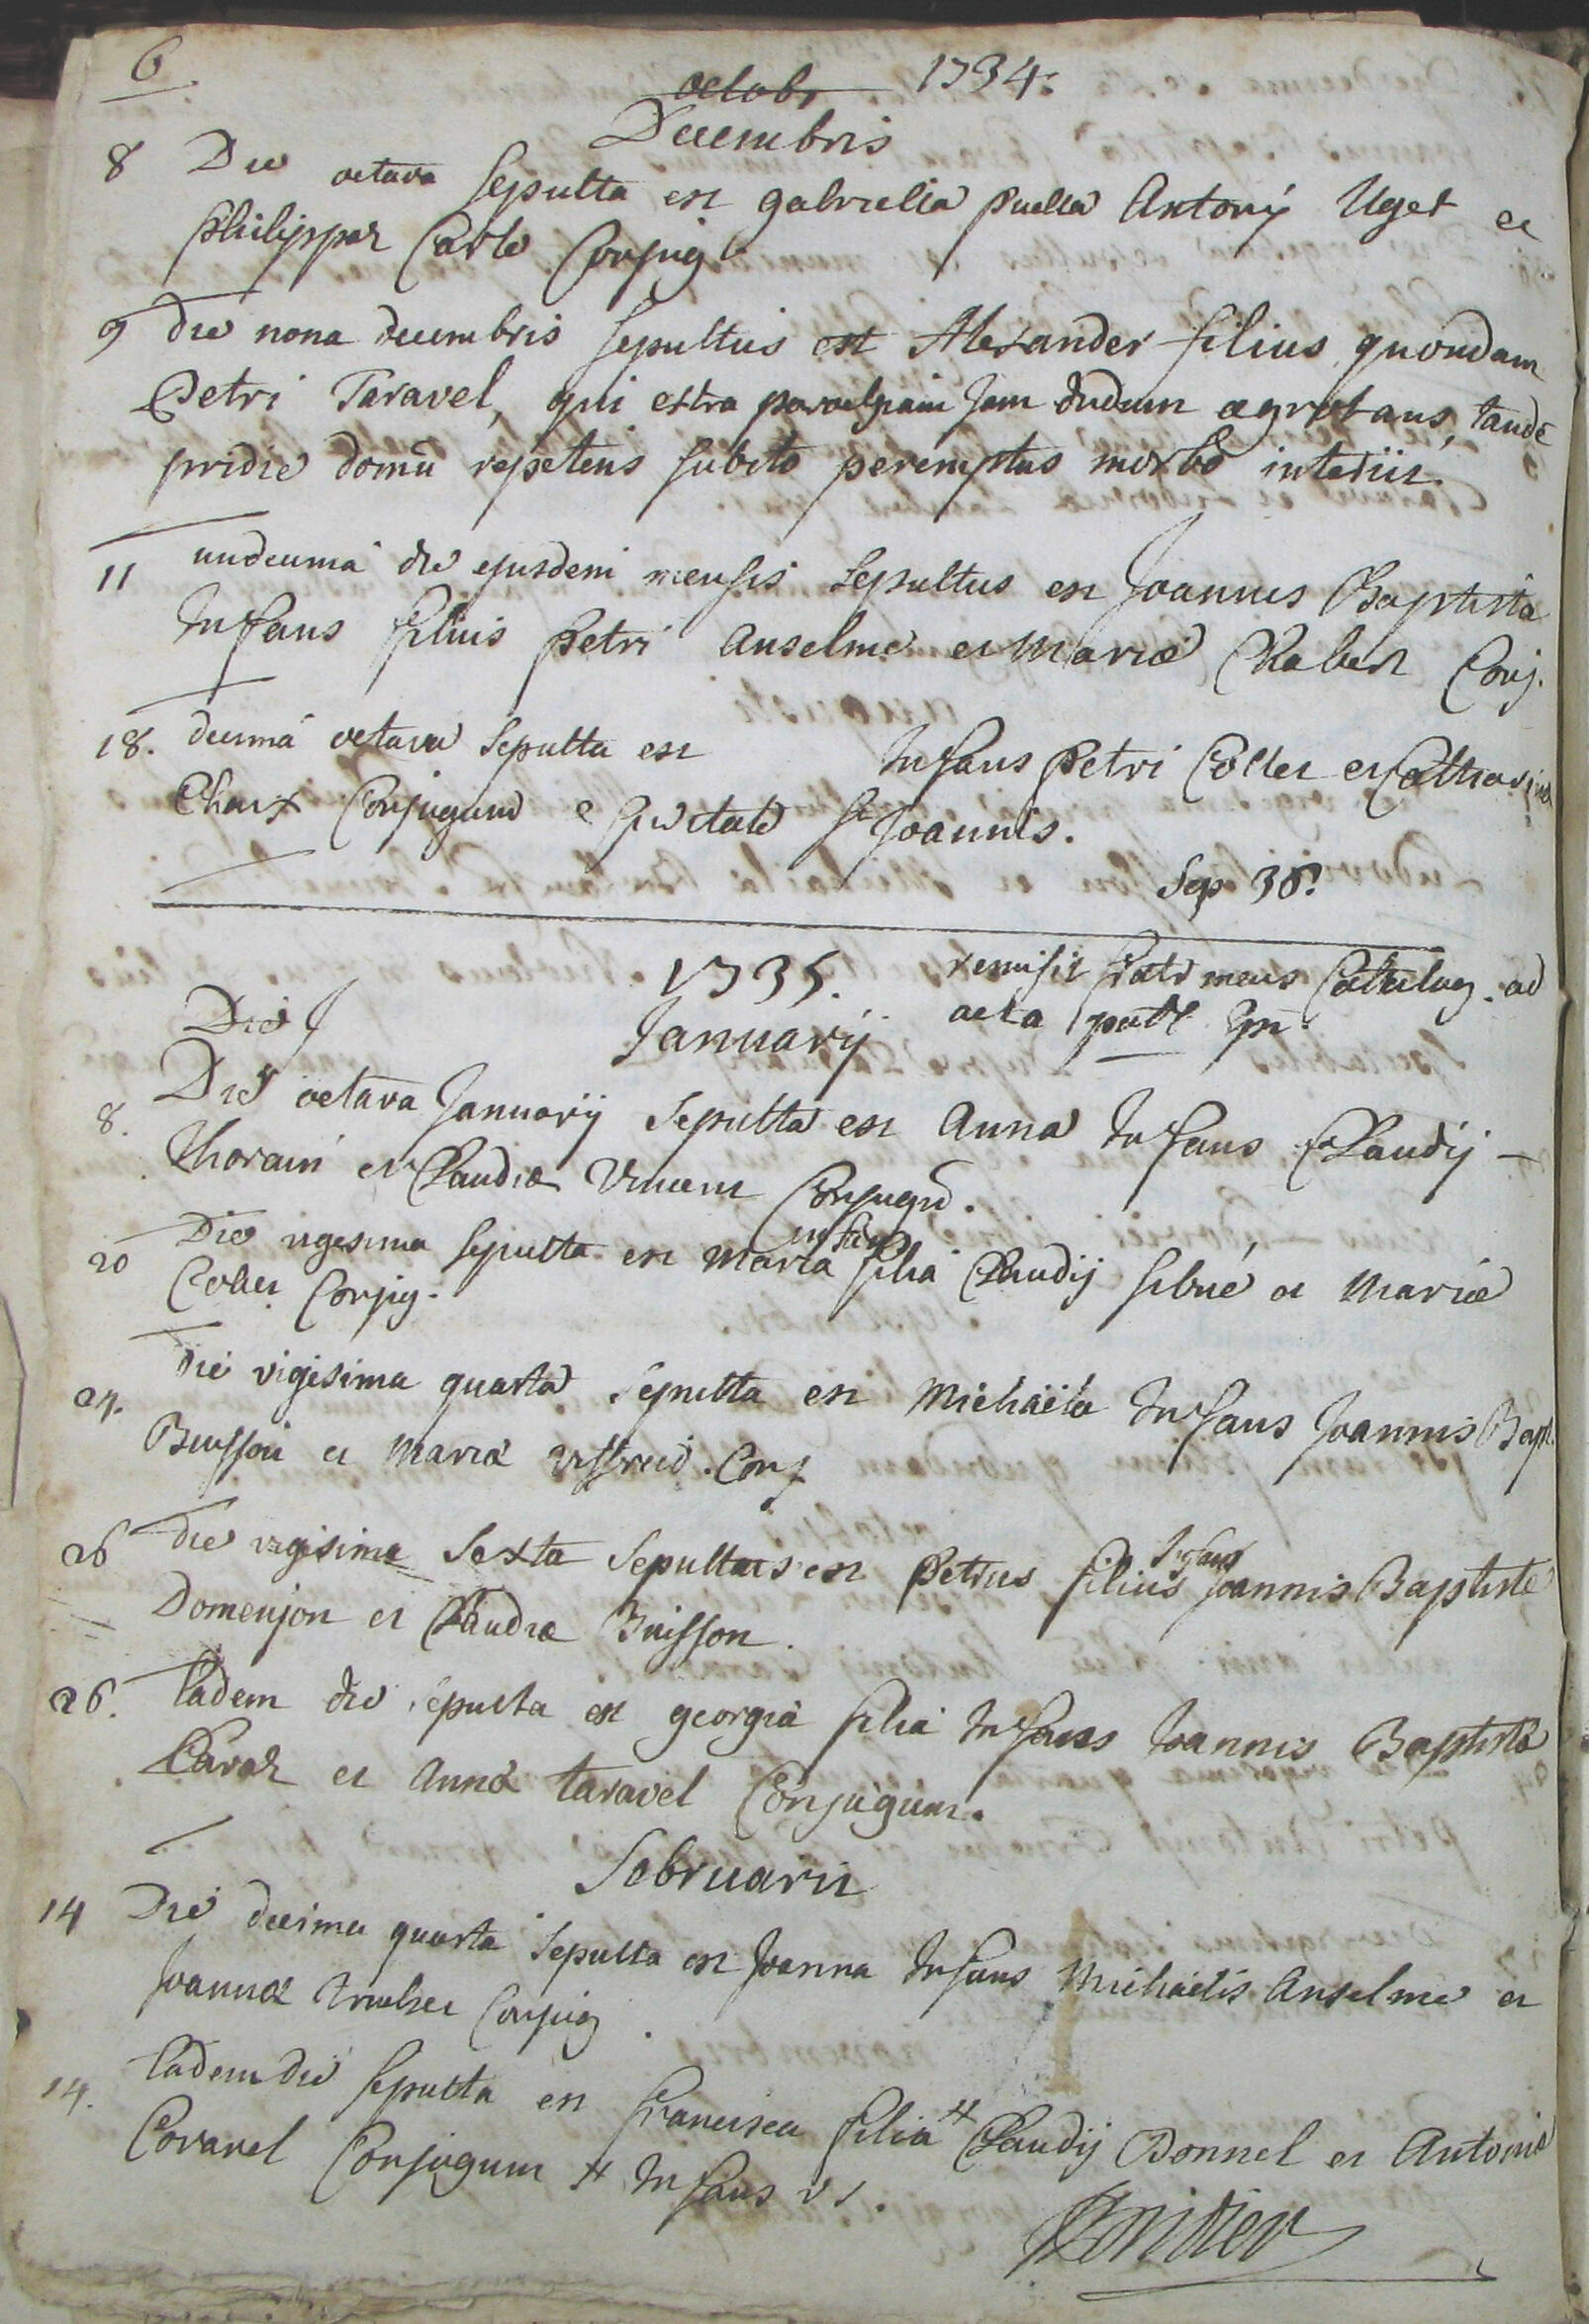 6
octob, 1734.
Decembris
8 Die octava sepulta est gabriella puella Antonij Uget et
philippæ Carle Conjug.
9 die nona decembris sepultus est Alexander filius quondam
Petri Taravel, qui extra jam dudum ægrotans, tandē
pridie domū repetens subito peremptus morbo interiit.
11 undecima die ejusdem mensis sepultus est Joannes Baptista
Infans filius Petri Anselme et Mariæ Chabert Conj.
18. decima octava sepulta est Infans petri Collet et Catharina
Chaix Conjugum e St Joannis.
Sep 36.
1735. remisit meus ad
acta
Die J
Januarij
8. Die octava Januarij sepulta est Anna Infans Claudij
Thorain et Claudiæ Vincent Conjugū.
20 Die vigesima sepulta est Maria infans filia Claudij et Mariæ
Collet Conjug.
24. die vigesima quarta sepulta est Michaela Infans Joannis Bapt.
Buisson et Mariæ Conj
26 die vigesima sexta sepultus est Petrus filius Infans Joannis Baptiste
Domenjon et Claudiæ Buisson.
26. Eadem die sepulta est georgia filia Infans Joannis Baptista
et Annæ taravel Conjugum.
Februarii
14 Die decima quarta sepulta est Joanna Infans Michaelis Anselme et
Joannæ Conjug.
14. Eadem die sepulta est francisca filia # Claudij Bonnel et Antonia
Coravel Conjugum # Infans